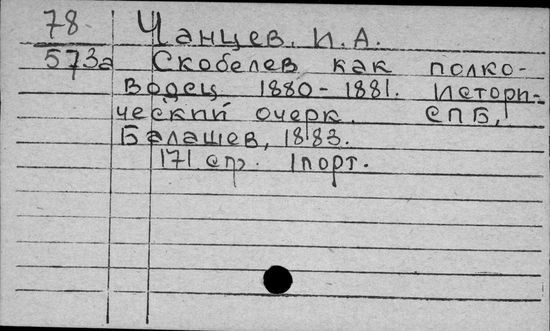 78 Чанцев, И. А.
573а Скобелев как полко-
водец 1880-1881. Истори-
ческий очерк. СПБ,
Балашев, 1883.
171 стр. 1 порт.